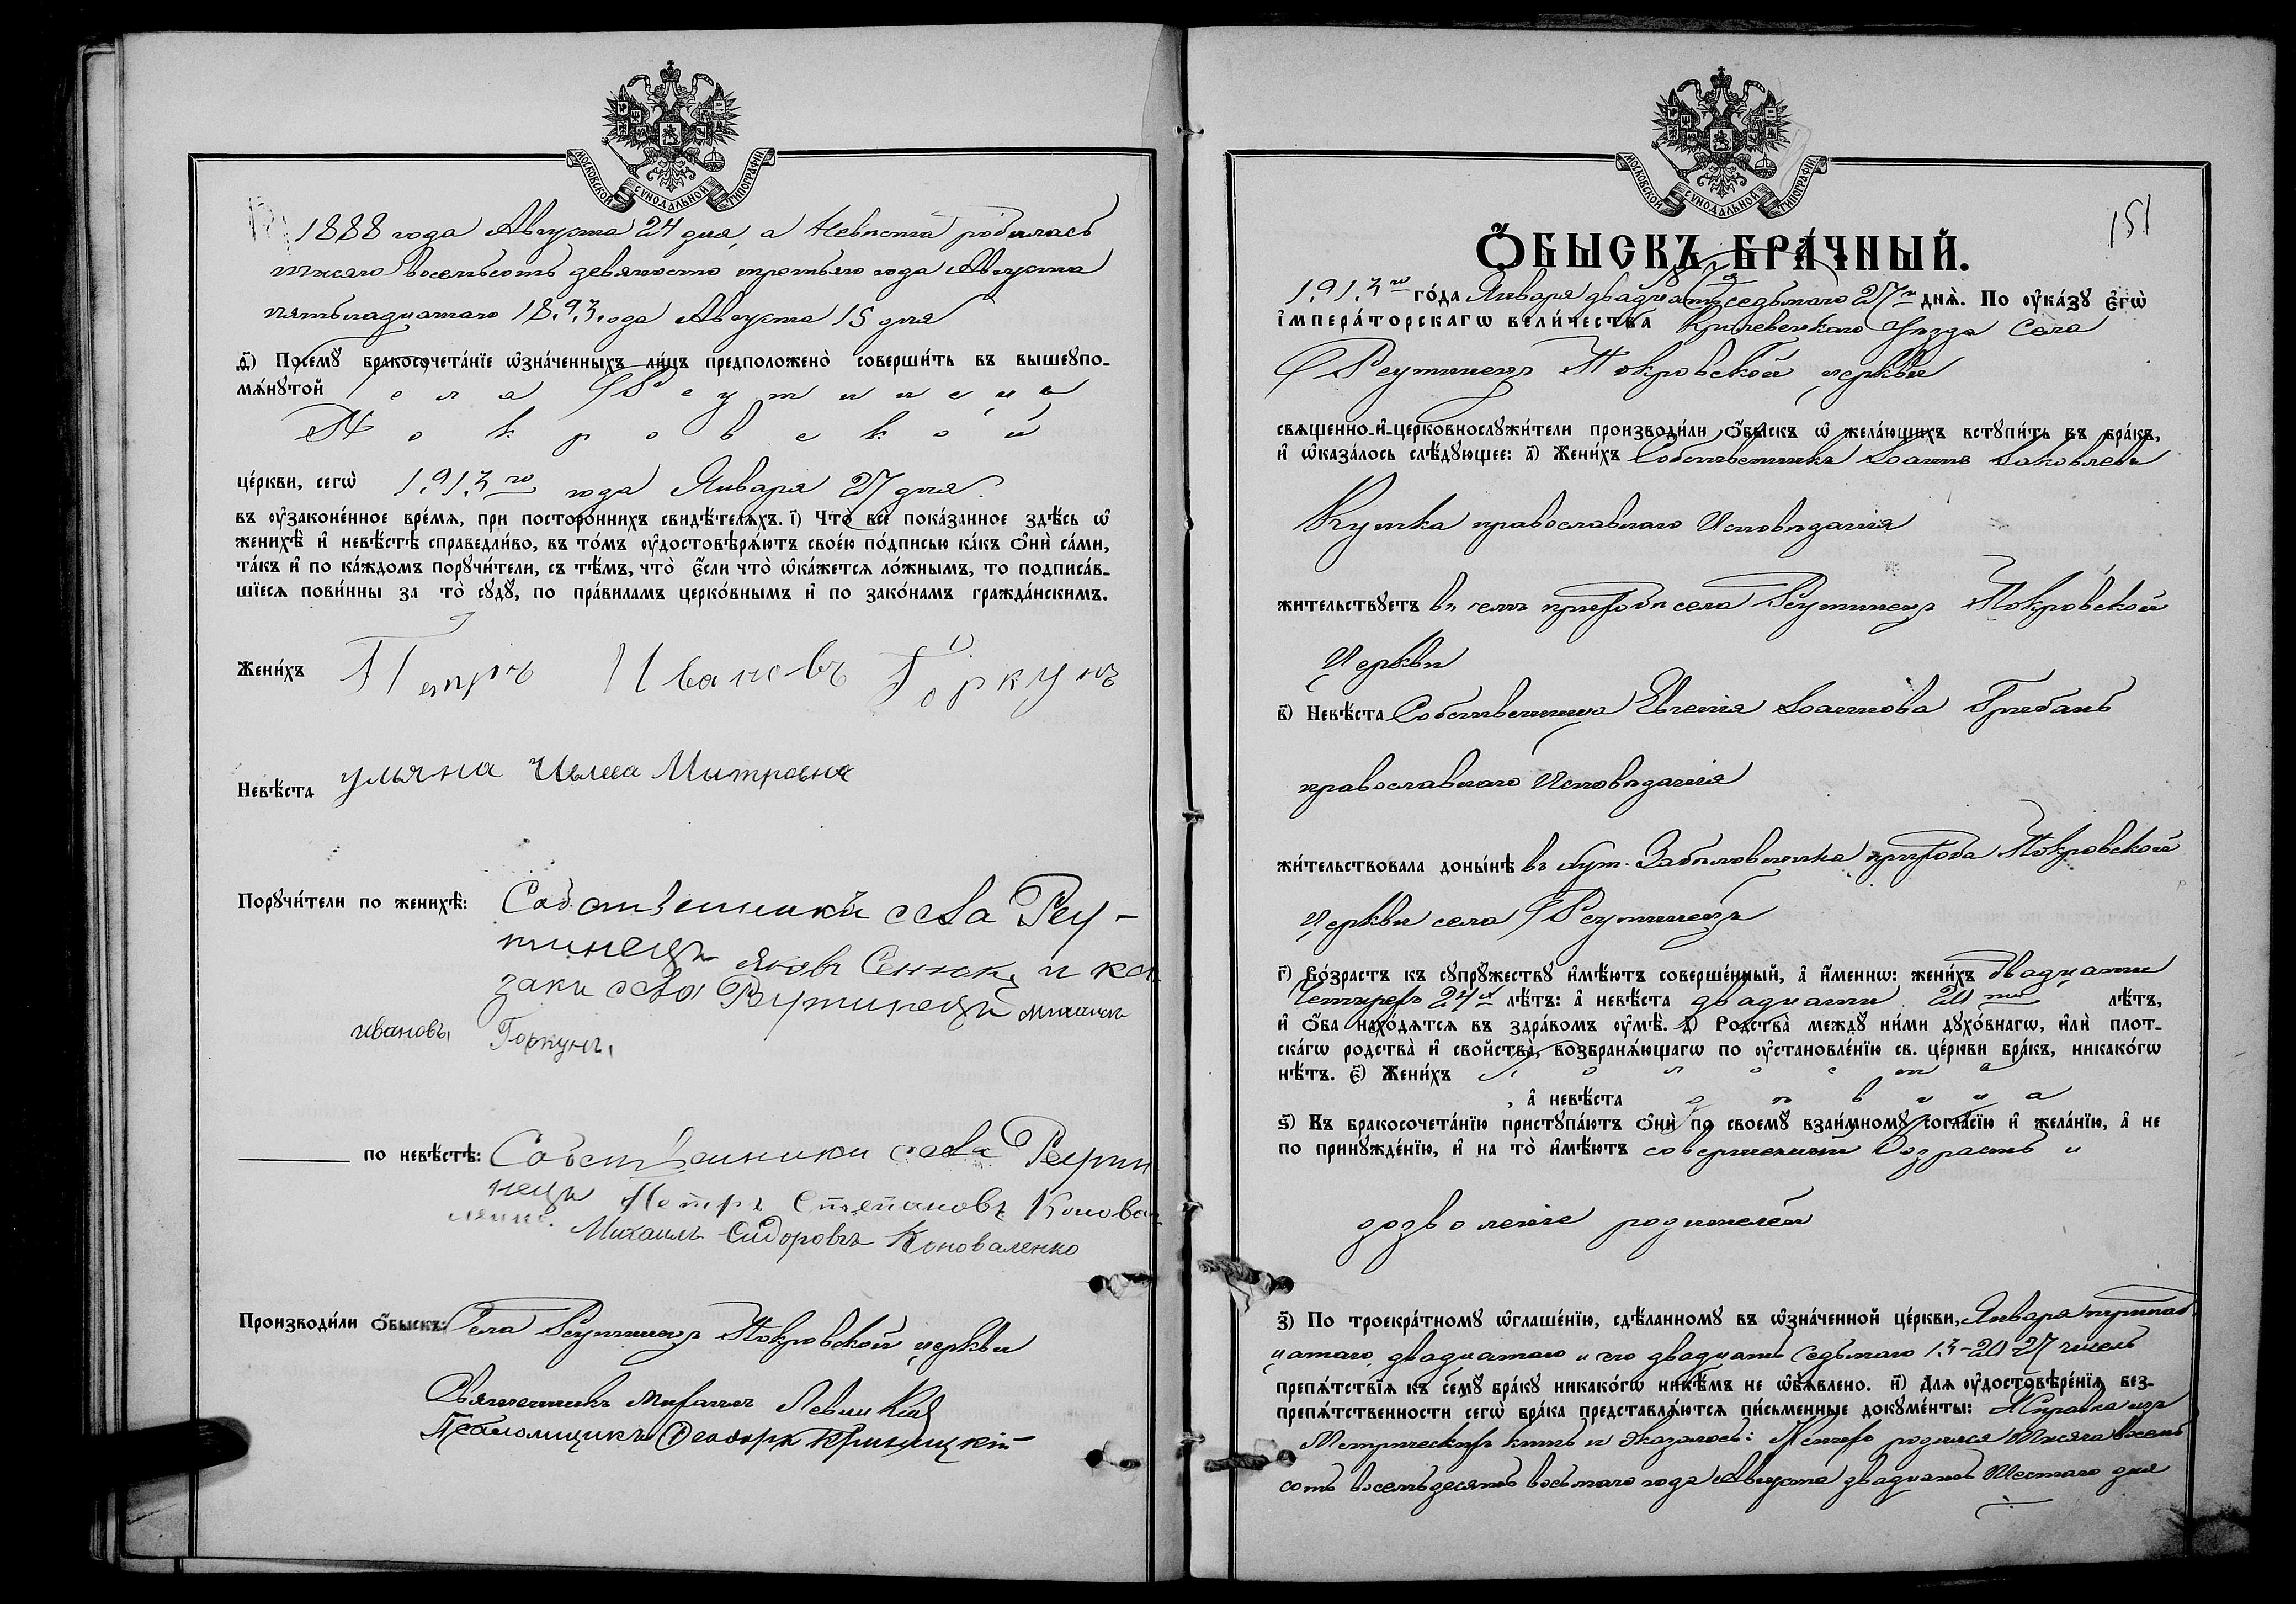 МОСКОВСКОЙ СѴНОДАЛЬНОЙ ТИПОГРАФІИ.
1888 года Августа 24 дня, а Невѣста родилась
тысяча восемьсотъ девяносто третьяго года Августа
пятьнадцатаго 1893 года Августа 15 дня
д҃) Посемꙋ̀ бракосочета́нїе ѡ҆зна́ченныхъ ли́цъ предположено̀ соверши́ть въ вышеꙋпо-
мѧ́нꙋтой села Реутинецъ
Покровской
це́ркви, сегѡ̀ 1913 го года Января 27 дня
въ ᲂу҆зако́ненное вре́мѧ, при посторо́ннихъ свидѣ́телѧхъ. і҃) Что̀ всѐ пока́занное здѣ́сь ѡ҆
женихѣ̀ и҆ невѣ́стѣ справедли́во, въ то́мъ ᲂу҆достовѣрѧ́ютъ свое́ю по́дписью ка́къ ѻ҆нѝ са́ми,
та́къ и҆ по ка́ждомъ порꙋчи́тели, съ тѣ́мъ, что̀ є҆́сли что̀ ѡ҆ка́жетсѧ ло́жнымъ, то подписа́в-
шїесѧ пови́нны за то̀ сꙋдꙋ̀, по пра́виламъ церко́внымъ и҆ по зако́намъ гражда́нскимъ.
Жени́хъ Петръ Ивановъ Горкунъ
Невѣ́ста Ульяна Митровна
Порꙋчи́тели по женихѣ̀: Собственники села Реу-
тинецъ Яковъ и ка
заки села Реутинецъ Михаилъ
Ивановъ Горкунъ
по невѣ́стѣ: Собственники села Реути
нецъ Петръ Степановъ Конова
ленко. Михаилъ Сидоровъ Коноваленко
Производи́ли ѻ҆́быскъ: Села Реутинецъ Покровской церкви
Священникъ Михаилъ Левицкій
Псаломщикъ Ѳеодоръ Криницкій
МОСКОВСКОЙ СѴНОДАЛЬНОЙ ТИПОГРАФІИ.
151
Ѻ҆́БЫСКЪ БРА́ЧНЫЙ.
1913 го го́да Января двадцать седьмаго 27 го днѧ̀. По ᲂу҆ка́зꙋ Є҆гѡ̀
І҆мпера́торскагѡ вели́чества Кролевецкаго Уѣзда Села
Реутинецъ Покровской церкви
свѧще́нно-и҆-церковнослꙋжи́тели производи́ли ѻ҆́быскъ ѡ҆ жела́ющихъ встꙋпи́ть въ бра́къ,
и҆ ѡ҆каза́лось слѣ́дꙋющее: а҃) Жени́хъ Собственникъ Іоаннъ Іаковлевъ
Купка православнаго Исповѣданія
жи́тельствꙋетъ въ селѣ приходѣ села Реутинецъ Покровской
Церкви
в҃) Невѣ́ста Собственница Евгенія Іоаннова Грибанъ
православнаго Исповѣданія
жи́тельствовала доны́нѣ въ хут. прихода Покровской
Церкви села Реутинецъ
г҃) Во́зрастъ къ сꙋпрꙋ́жествꙋ и҆мѣ́ютъ соверше́нный, а҆ и҆́меннѡ: жени́хъ двадцати
четырехъ 24 х лѣ́тъ: а҆ невѣ́ста двадцати 20 ти лѣ́тъ,
и҆ ѻ҆́ба нахо́дѧтсѧ въ здра́вомъ ᲂу҆мѣ̀. д҃) Родства̀ междꙋ̀ ни́ми дꙋхо́внагѡ, и҆лѝ пло́т-
скагѡ родства̀ и҆ сво́йства, возбранѧ́ющагѡ по ᲂу҆становле́нїю св. це́ркви бра́къ, никако́гѡ
нѣ́тъ. є҃) Жени́хъ холостъ
, а҆ невѣ́ста дѣвица
ѕ҃) Къ бракосочета́нїю пристꙋпа́ютъ ѻ҆нѝ по своемꙋ̀ взаи́мномꙋ согла́сїю и҆ жела́нїю, а҆ не
по принꙋжде́нїю, и҆ на то̀ и҆мѣ́ютъ совершенный возрастъ и
дозволеніе родителей
з҃) По троекра́тномꙋ ѡ҆глаше́нїю, сдѣ́ланномꙋ въ ѡ҆зна́ченной це́ркви, Января тринад
цатаго, двадцатаго и двадцать седьмаго 13-20-27 чиселъ
препѧ́тствїѧ къ семꙋ̀ бра́кꙋ никако́гѡ никѣ́мъ не ѡ҆б̾ѧ́влено. и҃) Длѧ ᲂу҆достовѣре́нїѧ без-
препѧ́тственности сегѡ̀ бра́ка представлѧ́ютсѧ пи́сьменные докꙋме́нты: Справка изъ
Метрическихъ книгъ и оказалось: Женихъ родился тысяча восемь
сотъ восемьдесятъ восьмаго года Августа двадцать дня